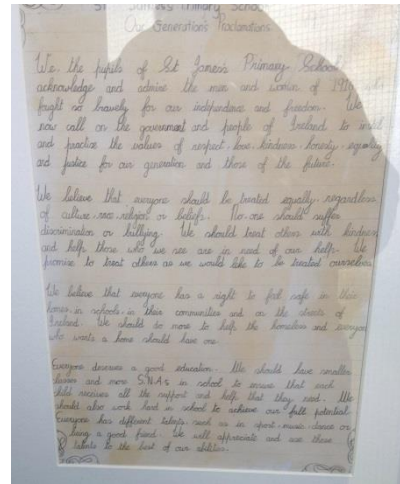 St James's Primary School
Our Generation's Proclamations
We, the pupils of St James's Primary School
acknowledge and admire the men and women of 1916 who
fought so bravely for our independence and freedom. We
now call on the government and people of Ireland to
and practice the values of respect, love, kindness, honesty, equality
and justice for our generation and those of the future.
We believe that everyone should be treated equally, regardless
of culture, race, religion or beliefs. No-one should suffer
discrimination or bullying. We should treat others with kindness
and help those who we see are in need of our help. We
promise to treat others as we would like to be treated ourselves.
We believe that everyone has a right to feel safe in their
homes, in schools, in their communities and on the streets of
Ireland. We should do more to help the homeless and everyone
who wants a home should have one.
Everyone deserves a good education. We should have smaller
classes and more S.N.As in school to ensure that each
child receives all the support and help that they need. We
should also work hard in school to achieve our full potential.
Everyone has different talents, such as in sport, music, dance or
being a good friend. We will appreciate and use these
talents to the best of our abilities.